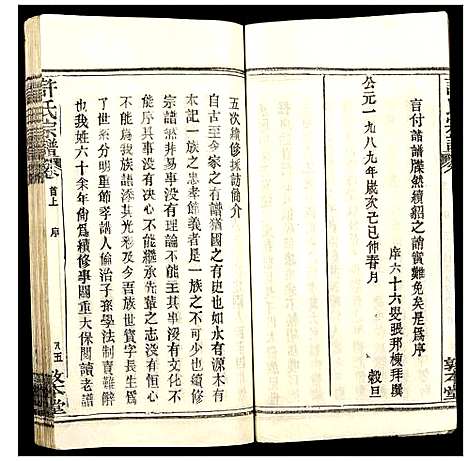 言付諸譜牒然續紹之誚實難免矣是爲序
序六十六叟張邦棟拜撰
公元一九八九年歲次己巳仲春月
穀旦
敦本堂
五次續修採訪簡介
自古至今家之有譜猶國之有史也如水有源木有
本記一族之忠孝節義者是一族之不可少也續修
宗譜非易事没有理論不能主其事没有文化不
能任序其事没有決心不能繼承先輩之志没有恒心
不能為我族添其光彩及今吾族世實字長生爲
最長輩節重修事訓人倫治子孫學法制責難辭
也我姓六十余年尚爲續修事關重大保閱讀老譜
許氏宗譜
首上
序
五
敦本堂